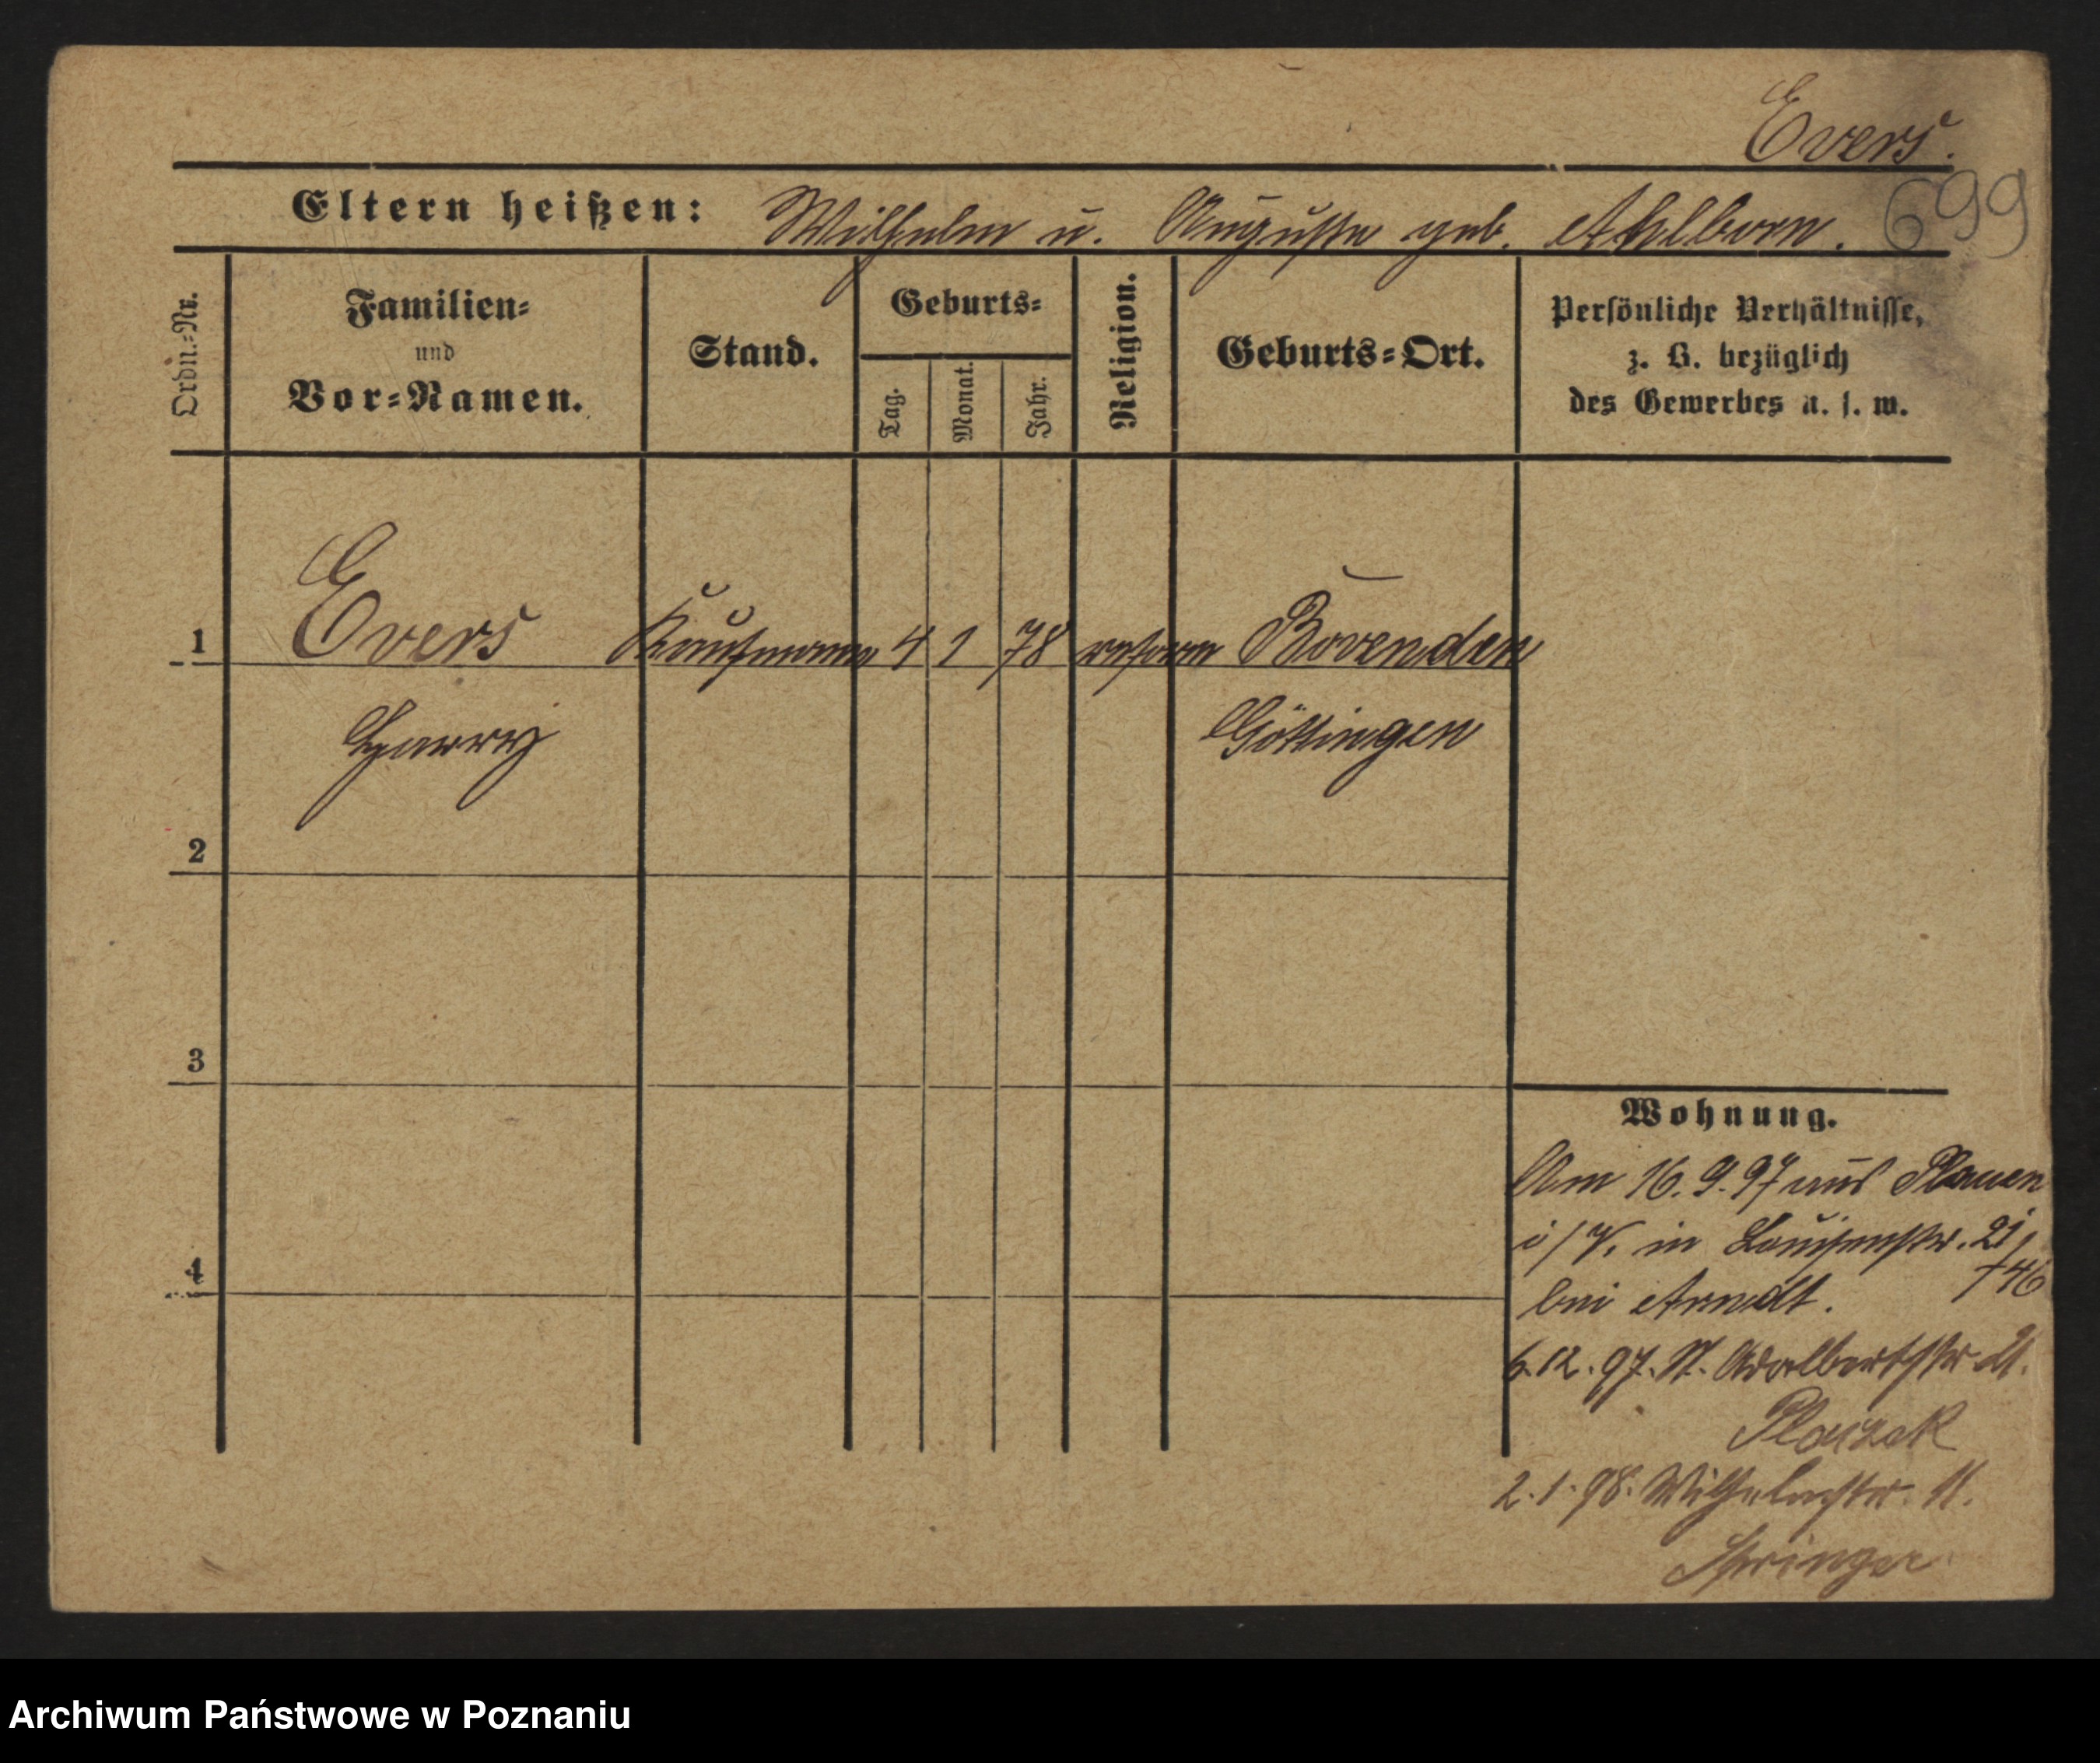 Evers.
699
Eltern heißen: Wilhelm u. Auguste geb. Ahlborn.
Ordn.-Nr.
Familien-
und
Vor-Namen.
Stand.
Geburts-
Tag.
Monat.
Jahr.
Religion.
Geburts-Ort.
Persönliche Verhältnisse,
z. B. bezüglich
des Gewerbes u. s. w.
1 Evers Kaufmann 4 1 78 reform Bovenden
Harry Göttingen
2
3
4
Wohnung.
Am 16. 9. 97 aus Plauen
i/V. in Louisenstr. 21/
bei Arndt. 746
6.12.97. St. Adalbertstr 21.
2.1.98. Wilhelmstr. 11.
Springer
Archiwum Państwowe w Poznaniu